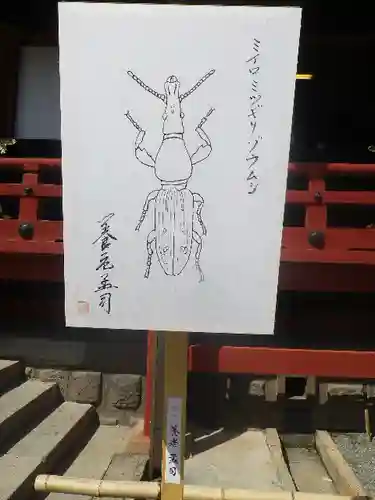 ミイロミツギリゾウムシ
養老孟司
養老孟司